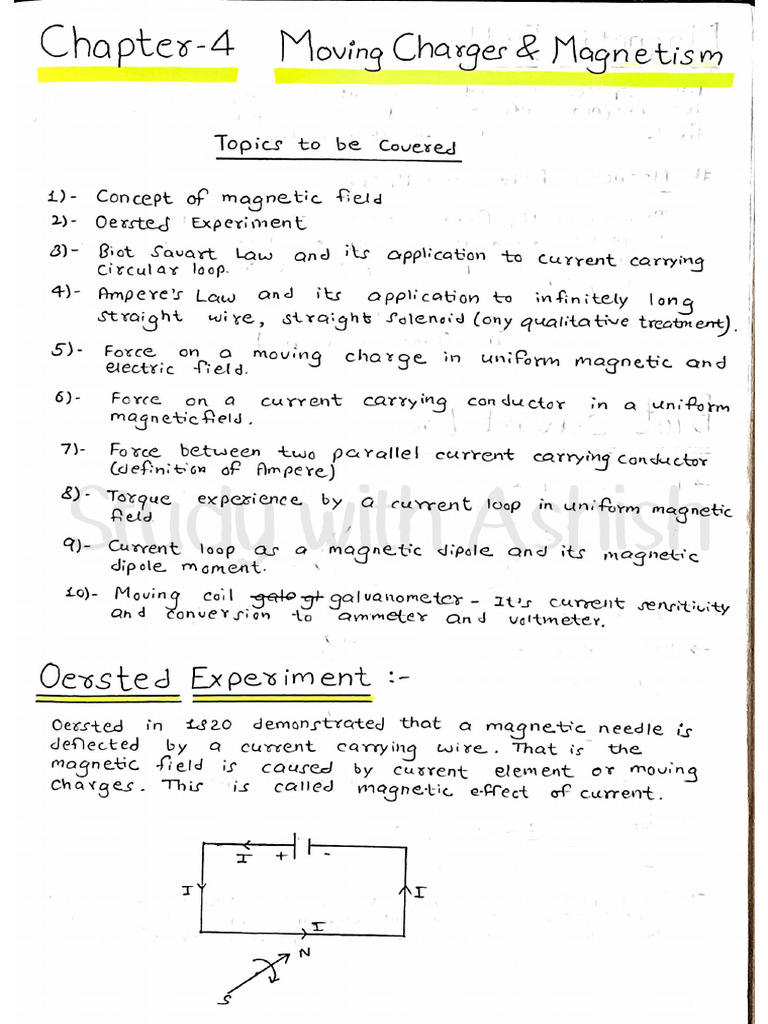 Chapter-4 Moving Charges & Magnetism
Topics to be Covered
1)- Concept of magnetic field
2)- Oersted Experiment
3)- Biot Savart Law and its application to current carrying
circular loop.
4)- Ampere's Law and its application to infinitely long
straight wire, straight solenoid (ony qualitative treatment).
5)- Force on a moving charge in uniform magnetic and
electric field.
6)- Force on a current carrying conductor in a uniform
magnetic field.
7)- Force between two parallel current carrying conductor
(definition of Ampere)
8)- Torque experience by a current loop in uniform magnetic
field
9)- Current loop as a magnetic dipole and its magnetic
dipole moment.
10)- Moving coil galo gl galvanometer - It's current sensitivity
and conversion to ammeter and voltmeter.
Study with Ashish
Oersted Experiment :-
Oersted in 1820 demonstrated that a magnetic needle is
deflected by a current carrying wire. That is the
magnetic field is caused by current element or moving
charges. This is called magnetic effect of current.
I + -
I I
I
N
S